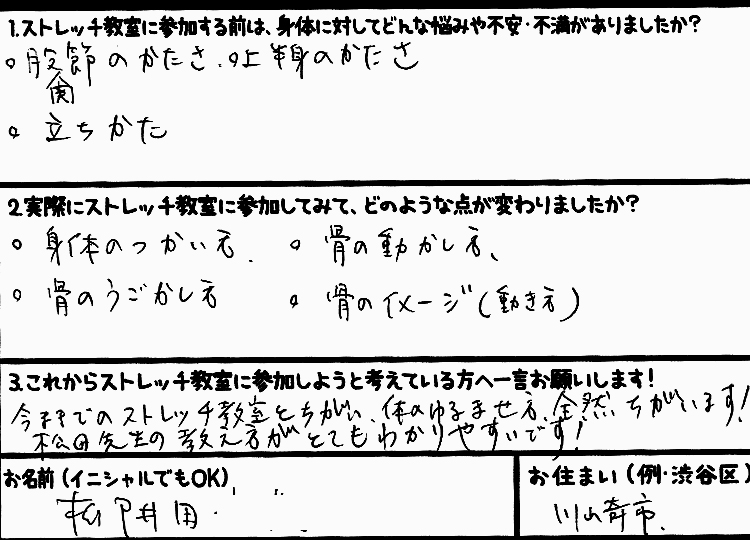 1.ストレッチ教室に参加する前は、身体に対してどんな悩みや不安・不満がありましたか?
○股関節のかたさ、○上半身のかたさ
○ 立ちかた
2.実際にストレッチ教室に参加してみて、どのような点が変わりましたか?
○ 身体のつかい方、 ○ 骨の動かし方、
○ 骨のうごかし方 ○ 骨のイメージ(動き方)
3.これからストレッチ教室に参加しようと考えている方へ一言お願いします!
今までのストレッチ教室とちがい、体のゆるませ方、全然ちがいます!
松田先生の教え方がとてもわかりやすいです!
お名前(イニシャルでもOK) お住まい(例・渋谷区)
川崎市.